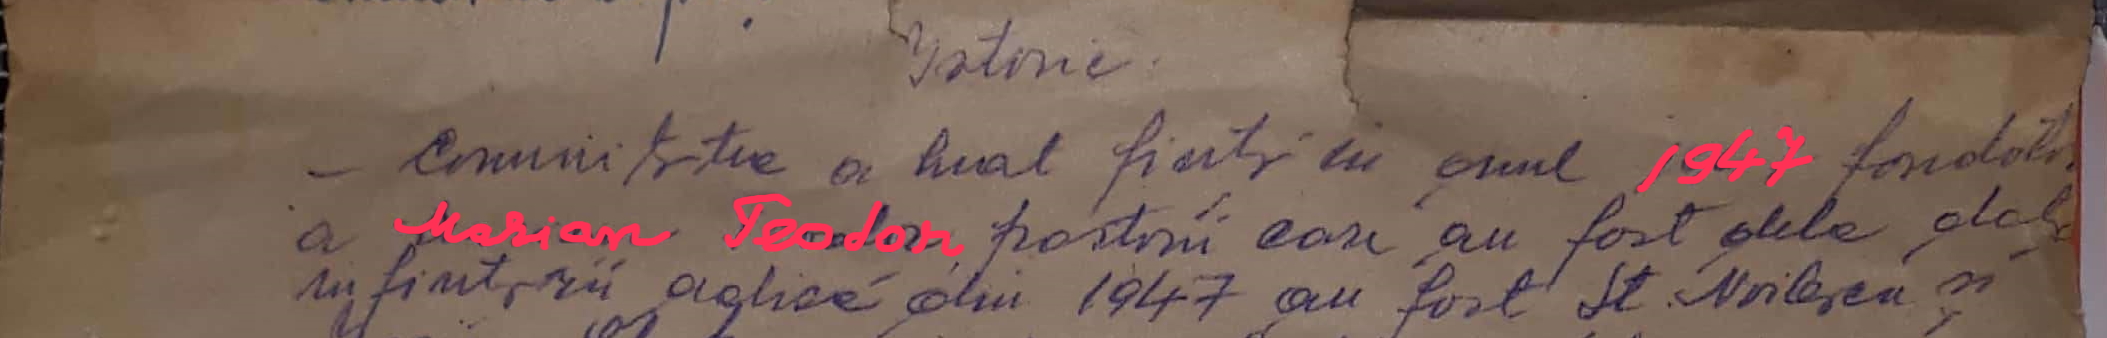 Istoric.
- Comunitatea a luat ființă în anul 1947 fondator
a Marian Teodor, pastorii care au fost dela data
înființării adică din 1947 au fost St. Noilescu și